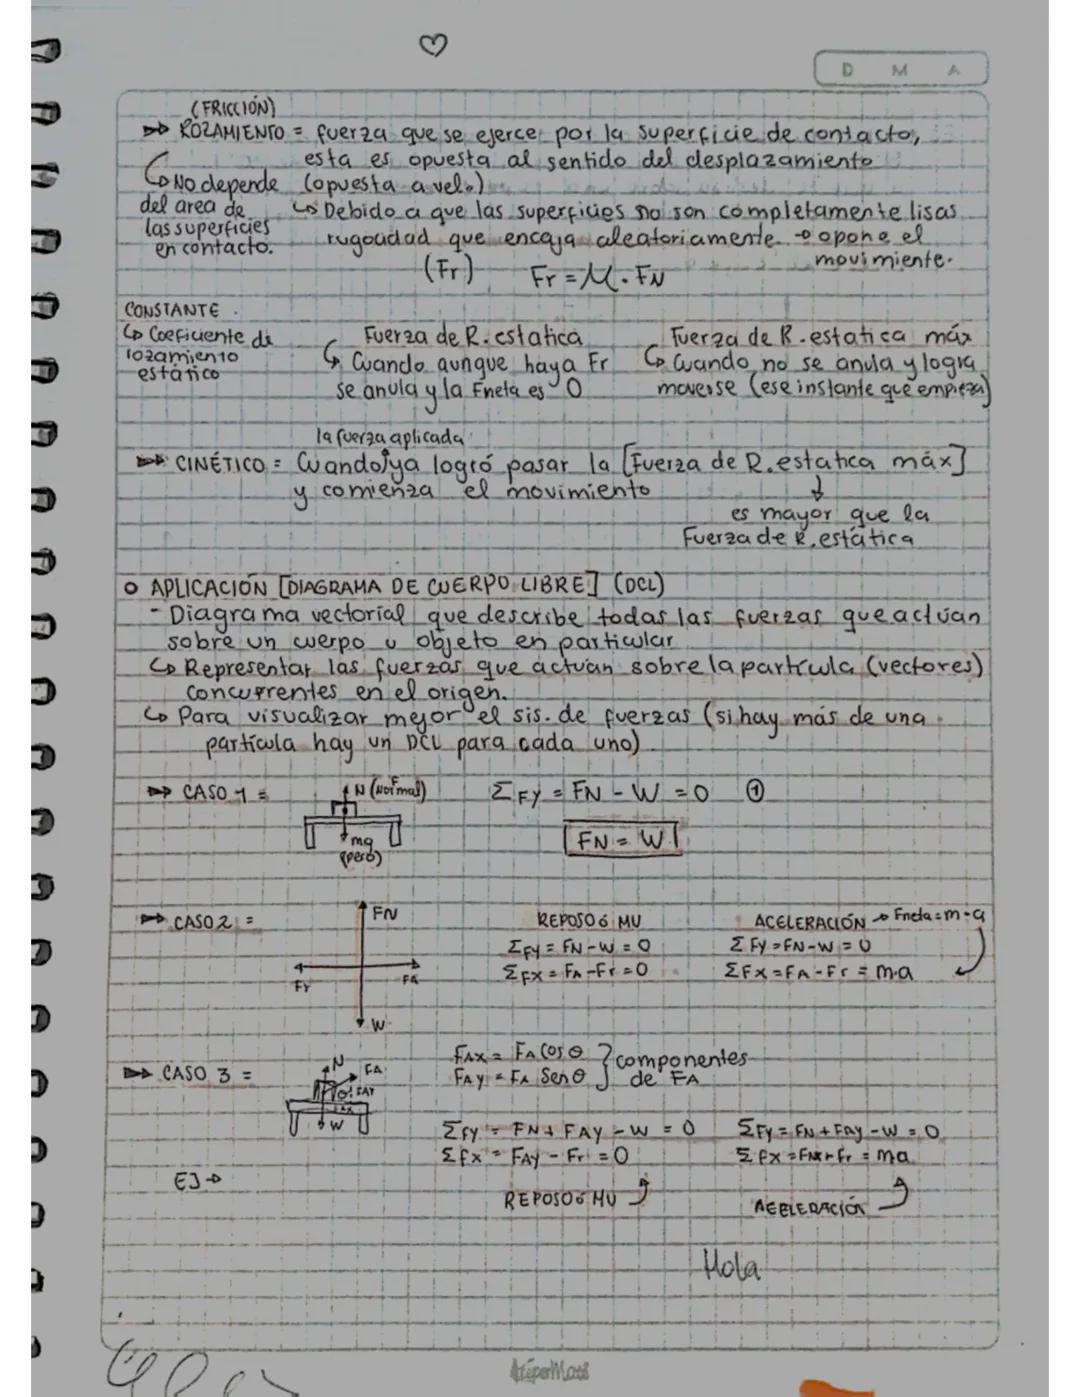 D M A
(FRICCIÓN)
ROZAMIENTO = fuerza que se ejerce por la superficie de contacto,
esta es opuesta al sentido del desplazamiento
(opuesta a vel.)
↳ No depende
del area de
las superficies
en contacto.
↳ Debido a que las superficies no son completamente lisas
rugocidad que encaja aleatoriamente → opone el
movimiente.
(Fr) Fr = M . FN
CONSTANTE
↳ Coeficiente de
rozamiento
estático
Fuerza de R. estatica
↳ Cuando aunque haya Fr
se anula y la Fneta es 0
Fuerza de R. estatica máx
↳ Cuando no se anula y logra
moverse (ese instante que empieza)
la fuerza aplicada
CINÉTICO = Cuando ya logró pasar la [Fuerza de R. estatica máx]
y comienza el movimiento
↓
es mayor que la
Fuerza de R. estática
o APLICACIÓN [DIAGRAMA DE CUERPO LIBRE] (DCL)
- Diagrama vectorial que describe todas las fuerzas que actúan
sobre un cuerpo u objeto en particular
↳ Representar las fuerzas que actúan sobre la partícula (vectores)
concurrentes en el origen.
↳ Para visualizar mejor el sis. de fuerzas (si hay más de una
partícula hay un DCL para cada uno)
CASO 1 =
N (Normal)
mg
(peso)
ΣFy = FN - W = 0 ①
FN = W
CASO 2 =
FN
Fr
FA
W
REPOSO ó MU
ΣFy = FN - W = 0
ΣFx = FA - Fr = 0
ACELERACIÓN → Fneta = m·a
ΣFy = FN - W = 0
ΣFx = FA - Fr = m.a
CASO 3 =
N
FA
FAY
W
FAx = FA Cos θ
FAy = FA Sen θ
} componentes
de FA
ΣFy = FN + FAY - W = 0
ΣFx = FAy - Fr = 0
REPOSO ó MU
ΣFy = FN + FAy - W = 0
ΣFx = FAx - Fr = ma
ACELERACIÓN
EJ →
Hola